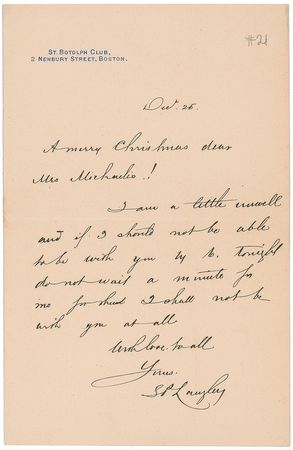 #21
ST. BOTOLPH CLUB,
2 NEWBURY STREET, BOSTON.
Dec. 25.
A merry Christmas dear
Mrs Michaelis!
I am a little unwell
and if I should not be able
to be with you by 6. tonight
do not wait a minute for
me for I shall not be
with you at all
With love to all
Yours.
S P Langley